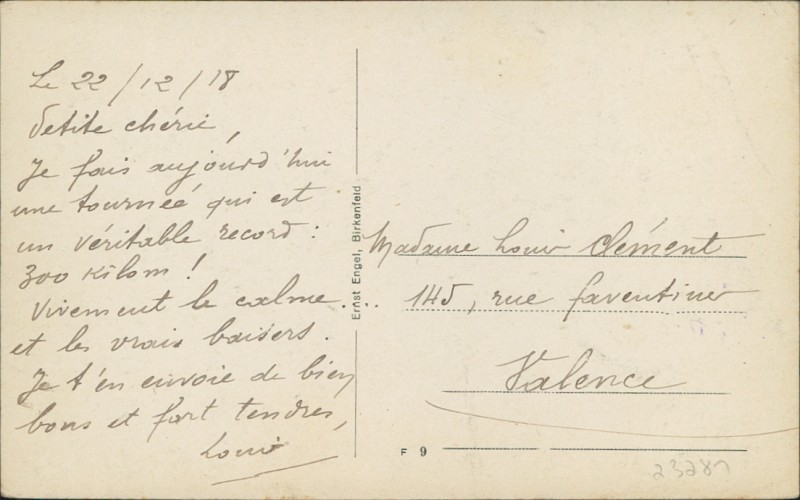 Le 22/12/18
Petite chérie,
Je fais aujourd'hui
une tournée qui est
un véritable record :
300 Kilom !
Vivement le calme...
et les vrais baisers.
Je t'en envoie de bien
bons et fort tendres,
Louis
Ernst Engel, Birkenfeld
Madame Louis Clément
145, rue faventines
Valence
F 9
23287